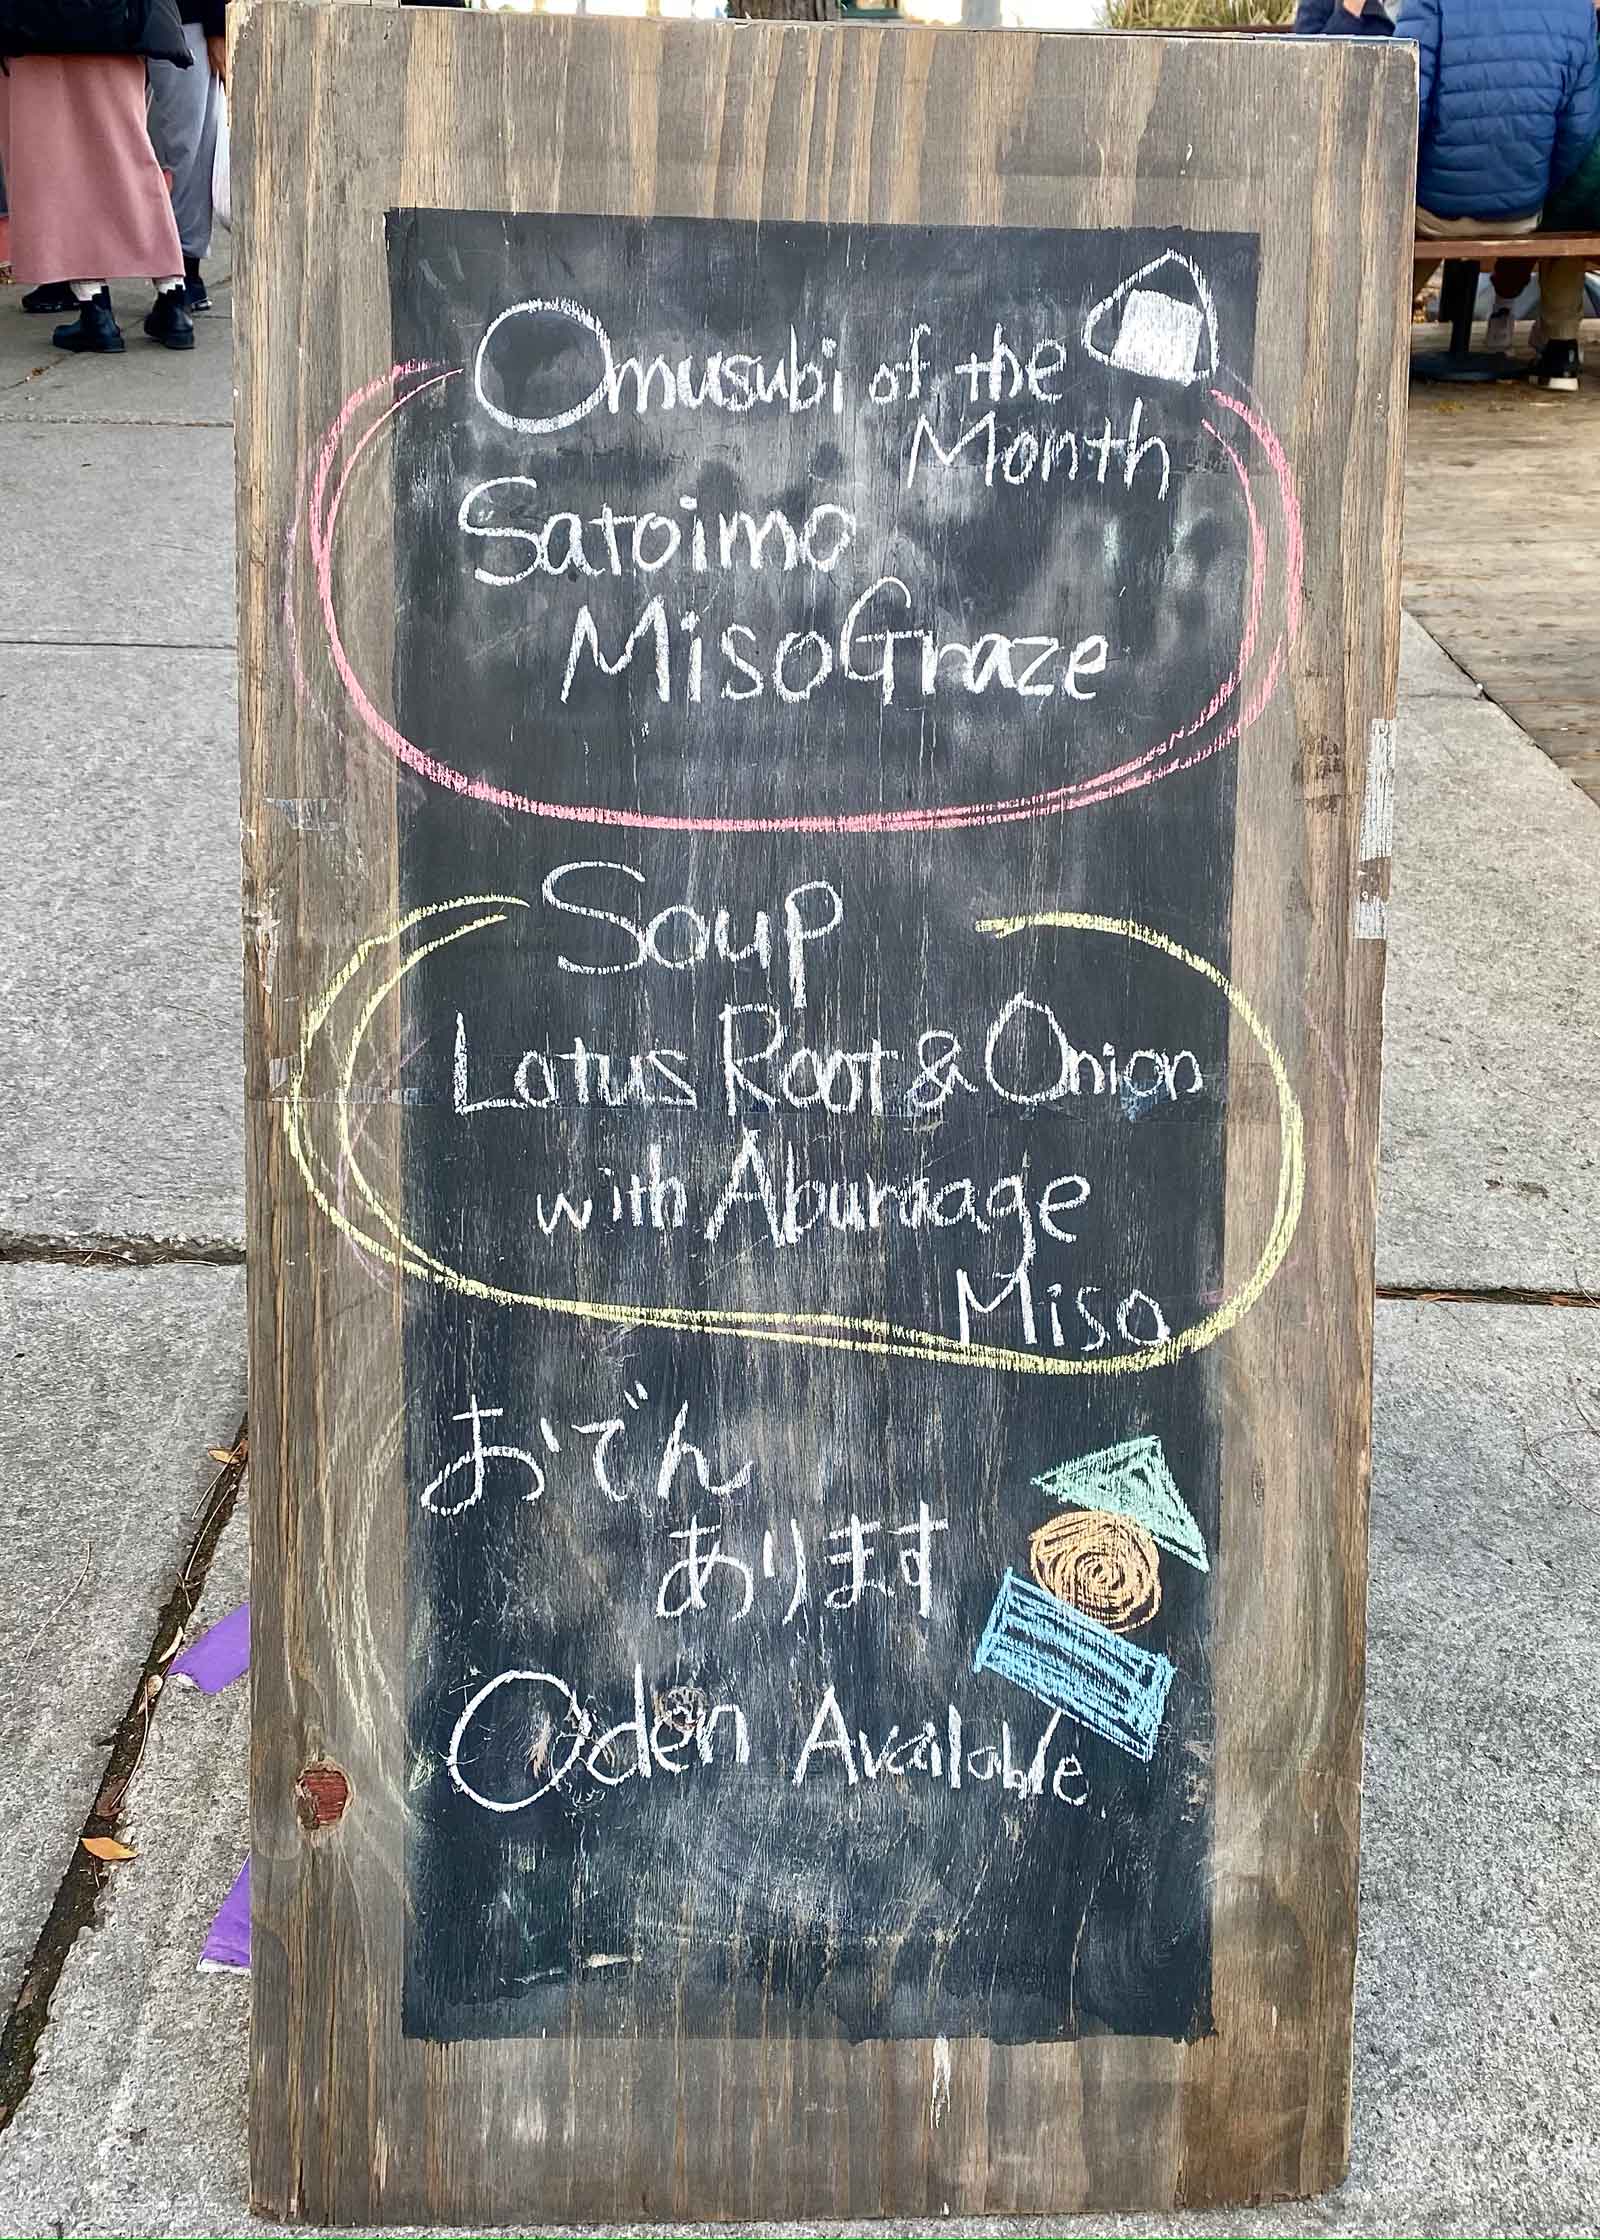 Omusubi of the
Month
Satoimo
Miso Graze
Soup
Lotus Root & Onion
with Aburaage
Miso
おでん
あります
Oden Available